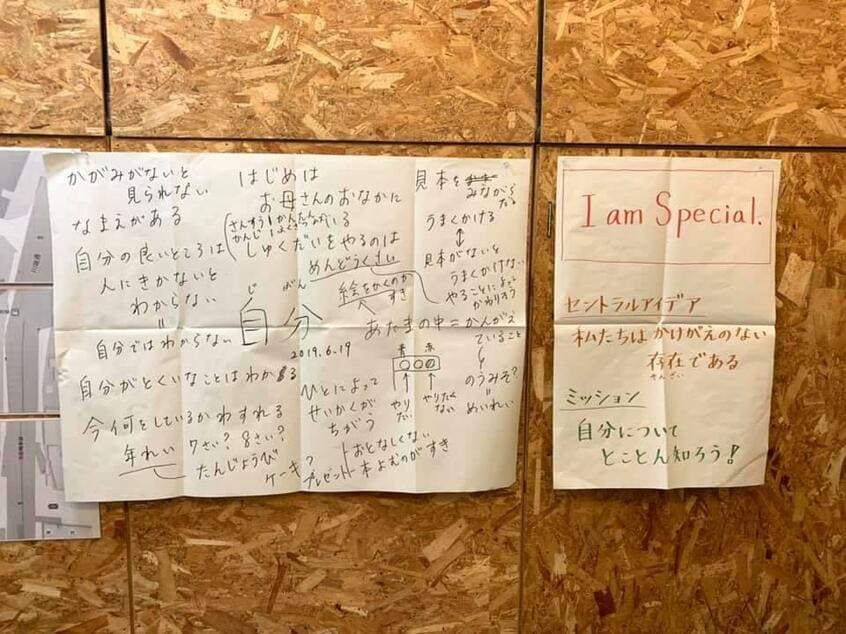 かがみがないと
見られない
なまえがある
自分の良いところは
人にきかないと
わからない
=
自分ではわからない
自分がとくいなことはわかる
今何をしているかわすれる
年れい 7さい? 8さい?
たんじょうび
ケーキ?
プレゼント
はじめは
お母さんのおなかに
いる
しゅくだいをやるのは
めんどうくさい
絵をかくのが
すき
じ ぶん
自分
2019.6.19
あたまの中=かんがえ
ていること
のうみそ?
=
めいれい
青 赤
やり
たい
やりたく
ない
ひとによって
せいかくが
ちがう
おとなしくない
本よむのがすき
見本を
みながら
だと
うまくかける
見本がないと
うまくかけない
やることによって
かわりそう
I am Special.
セントラルアイデア
私たちはかけがえのない
存在である
そんざい
ミッション
自分について
とことん知ろう!